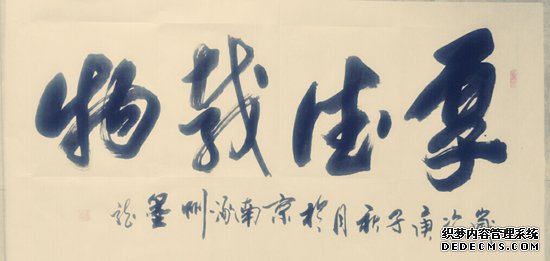 厚德载物
岁次庚子秋月於京南涿州墨
织梦内容管理系统
DEDECMS.COM